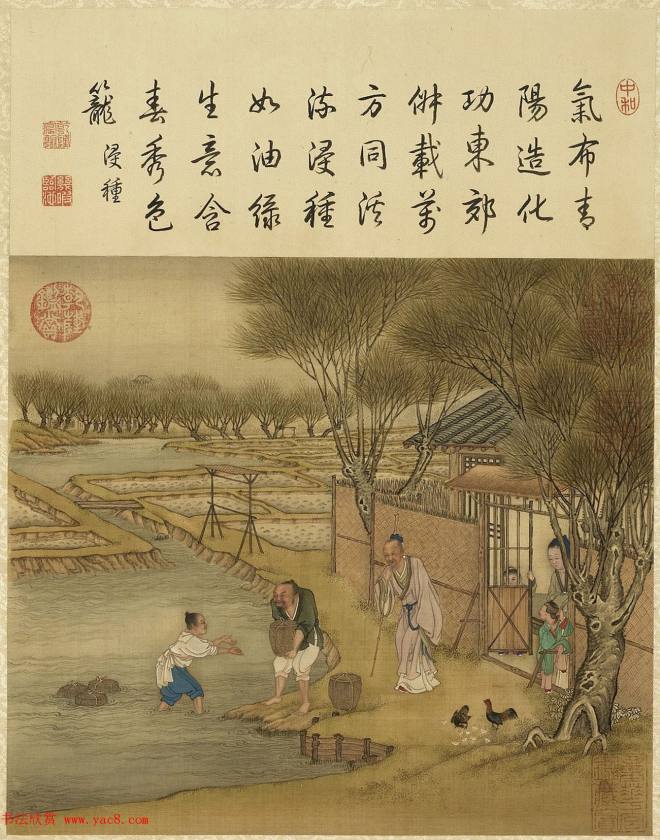 中和
氣布青
陽造化
功東郊
俶載萬
方同溪
流浸種
如油綠
生意含
春秀色
籠 浸種
书法欣赏 www.yac8.com